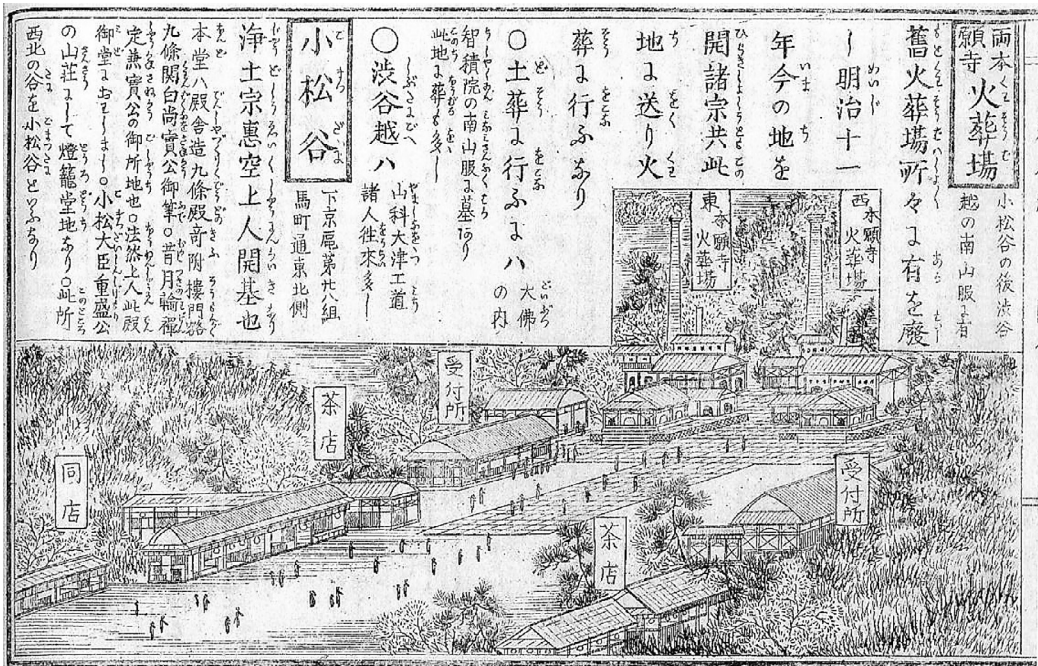 両本願寺 火葬場
小松谷の後渋谷
越の南山服に有
舊火葬場所々に有を廢
し明治十一
年今の地を
開諸宗共此
地に送り火
葬に行ふなり
○土葬に行ふには大佛の内
智積院の南山服に墓あり
此地に葬る多し
○渋谷越ハ
山科大津工道
諸人往來多し
小松谷
下京區第廿八組
馬町通東北側
浄土宗惠空上人開基也
本堂ハ殿舎造九條殿寄附樓門額
九條關白尚實公御筆○昔月輪禪
定兼實公の御所地也○法然上人此殿
御堂におはしまし○小松大臣重盛公
の山荘にして燈籠堂地あり○此所
西北の谷を小松谷といふなり
西本願寺火葬場
東本願寺火葬場
受付所
茶店
同店
受付所
茶店